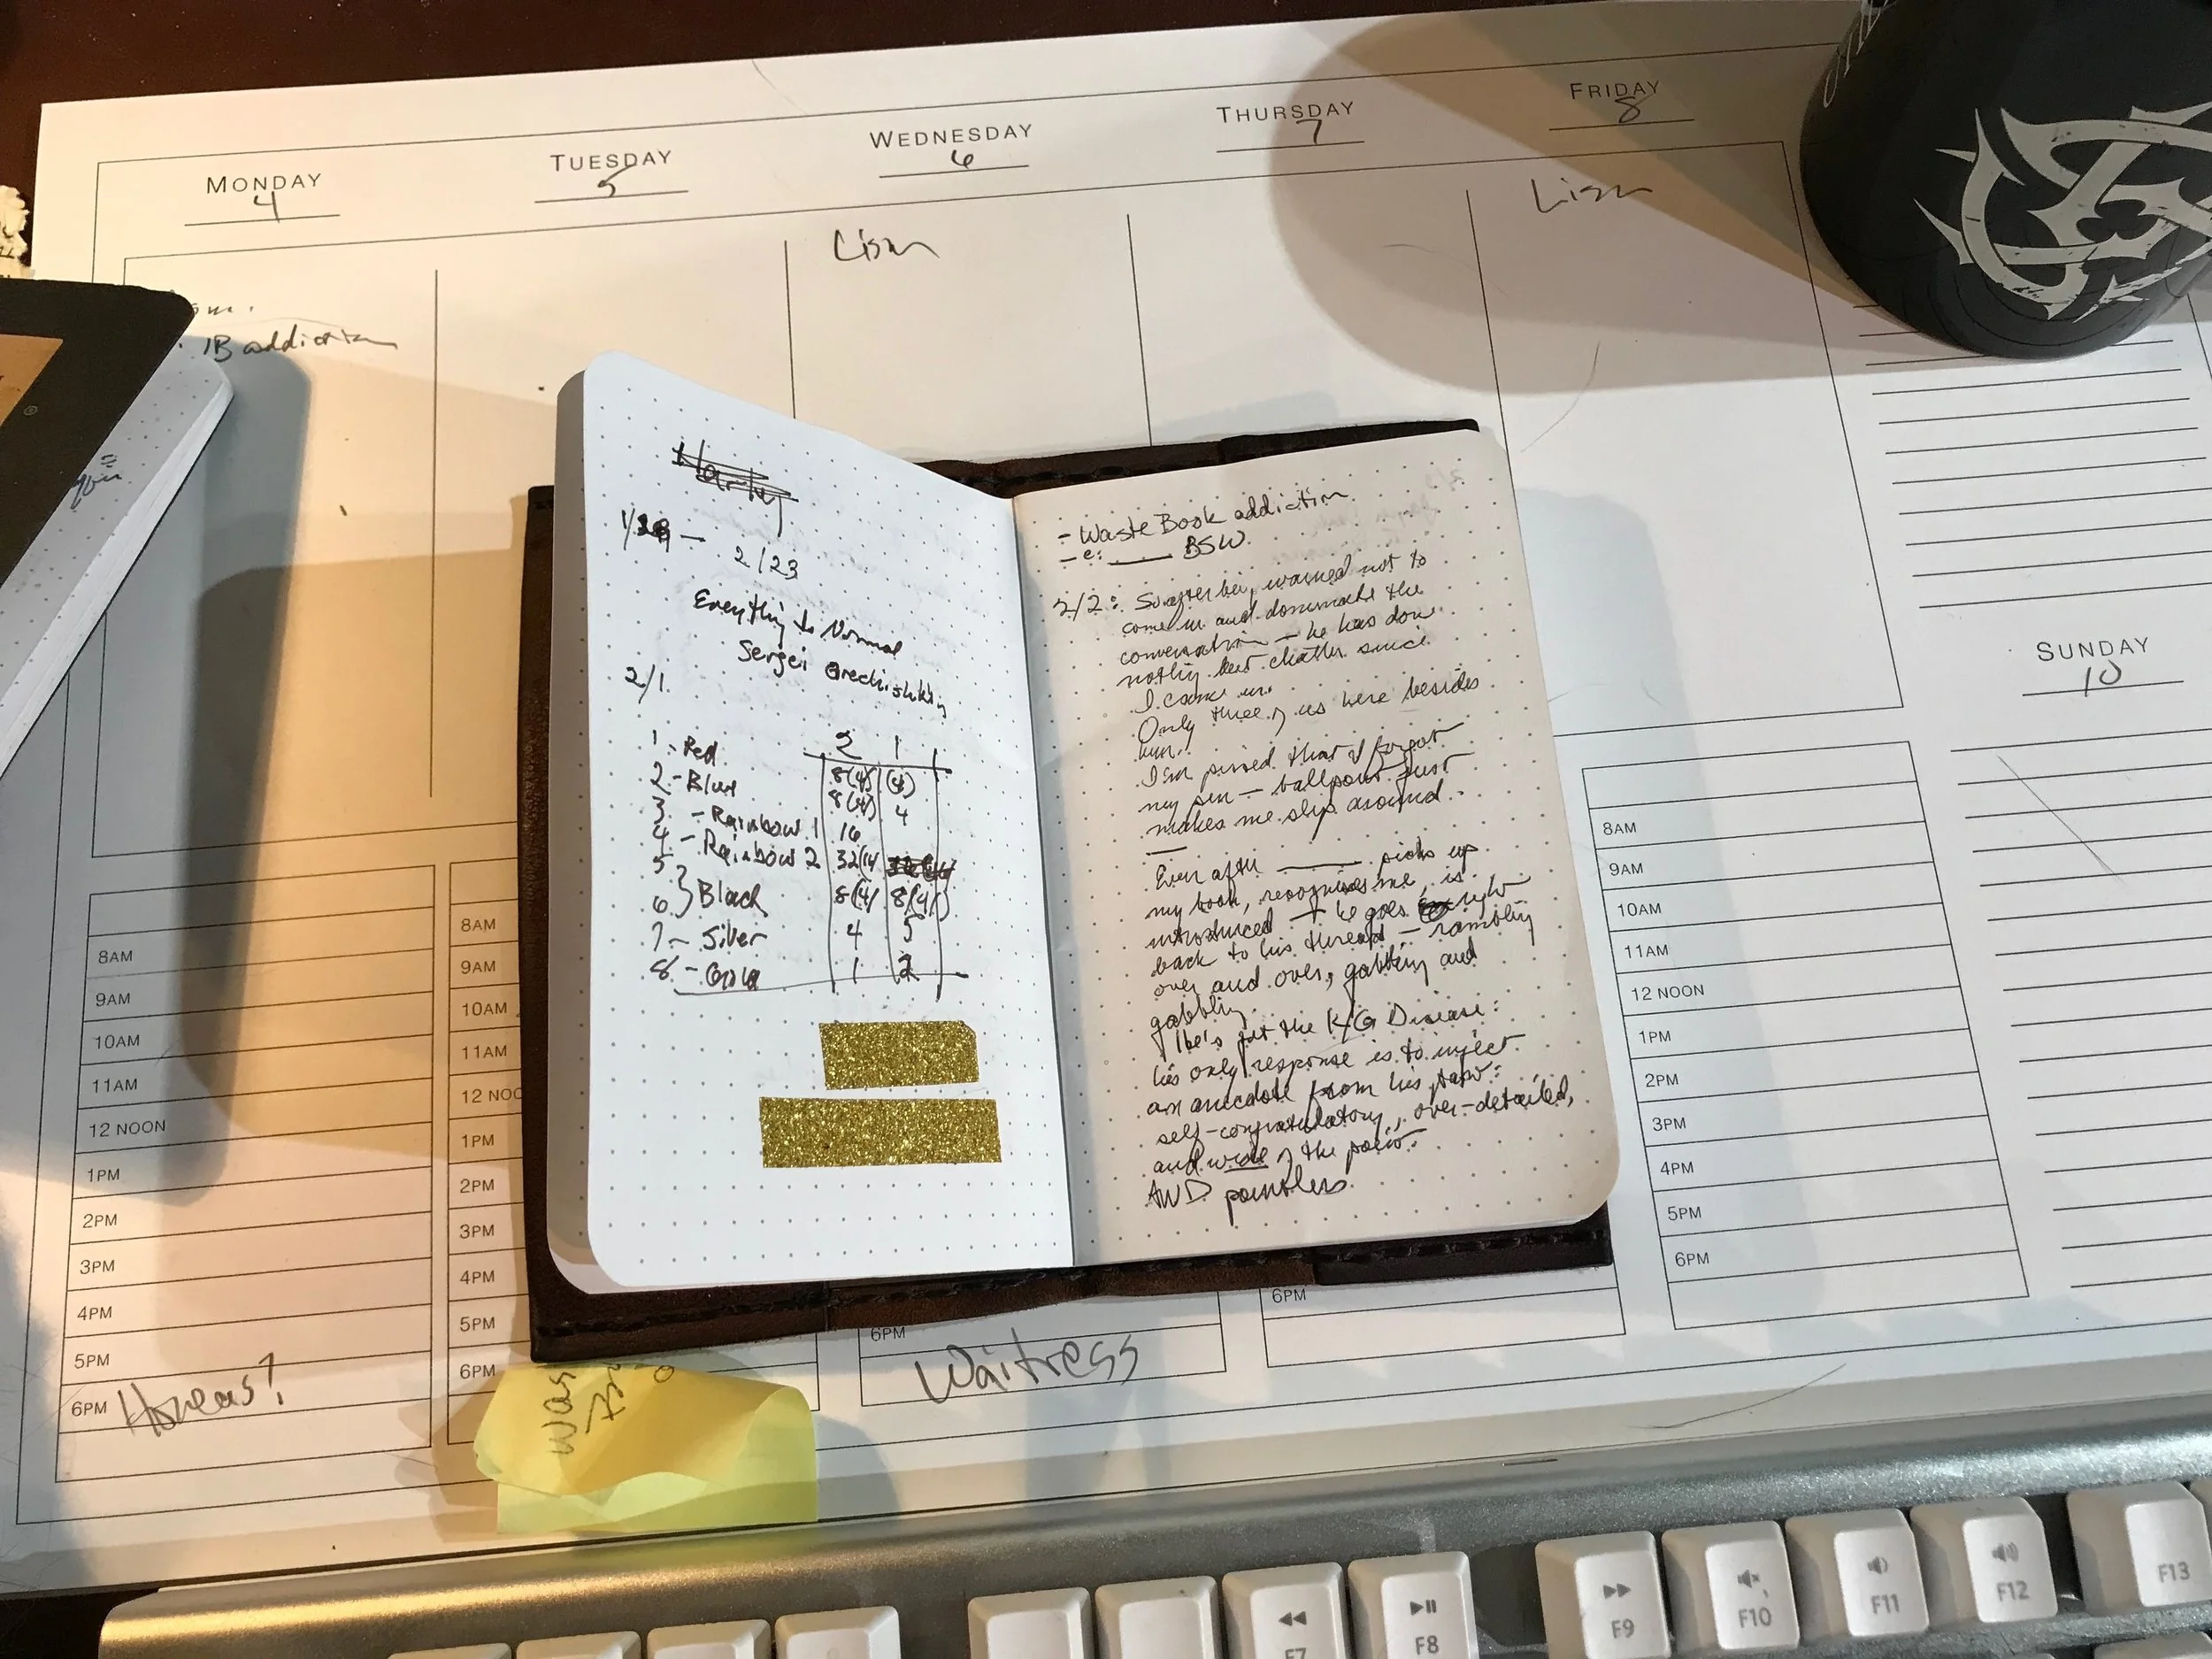 MONDAY
4
TUESDAY
5
WEDNESDAY
6
THURSDAY
7
FRIDAY
8
SUNDAY
10
B addiction
2/23
Everything is Normal
Sergei Grechishkin
2/1
2 1
1 - Red 8(4) (4)
2 - Blue 8(4) 4
3 - Rainbow 1 16
4 - Rainbow 2 32(4)
5
6 } Black 8(4) 8(4)
7 - Silver 4 5
8 - Gold 1 2
- Waste Book addiction
- e: ____ BSW
2/2: So after being warned not to
come in and dominate the
conversation - he has done
nothing but chatter since
I came in.
Only three of us here besides
him.
I am pissed that I forgot
my pen - ballpoint just
makes me slip around.
Even after ____ picks up
my book, recognizes me, is
introduced - he goes right
back to his thread - rambling
over and over, gabbing and
gabbing.
He's got the K/G Disease:
his only response is to inject
an anecdote from his past:
self-congratulatory, over-detailed,
and wide of the point.
AND pointless.
8AM
9AM
10AM
11AM
12 NOON
1PM
2PM
3PM
4PM
5PM
6PM
8AM
9AM
10AM
11AM
12 NOO
1PM
2PM
3PM
4PM
5PM
6PM
6PM
Waitress
6PM
8AM
9AM
10AM
11AM
12 NOON
1PM
2PM
3PM
4PM
5PM
6PM
Was
F7
F8
F9
F10
F11
F12
F13